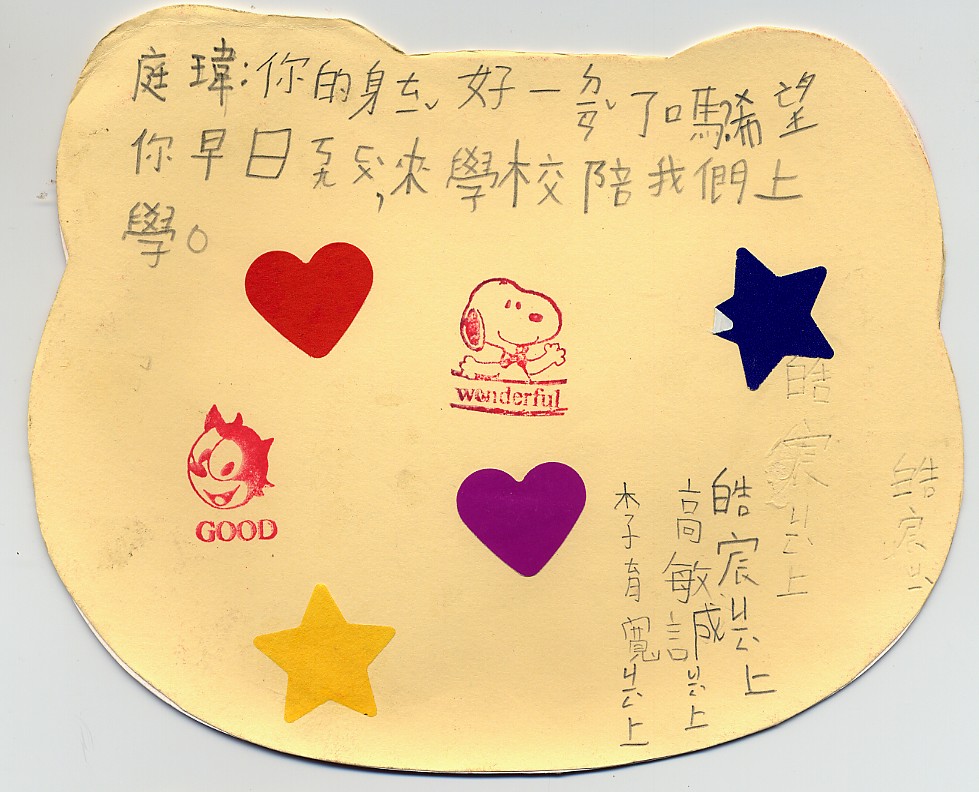 庭瑋:你的身ㄊㄧˇ好一ㄉㄧㄢˇ了嗎?希望
你早日ㄎㄤ來學校陪我們上
學。
wonderful
GOOD
皓宸ㄐㄧㄥ上
皓宸ㄐㄧㄥ
皓宸ㄐㄧㄥ上
高敏誠ㄐㄧㄥ上
李育寬ㄐㄧㄥ上